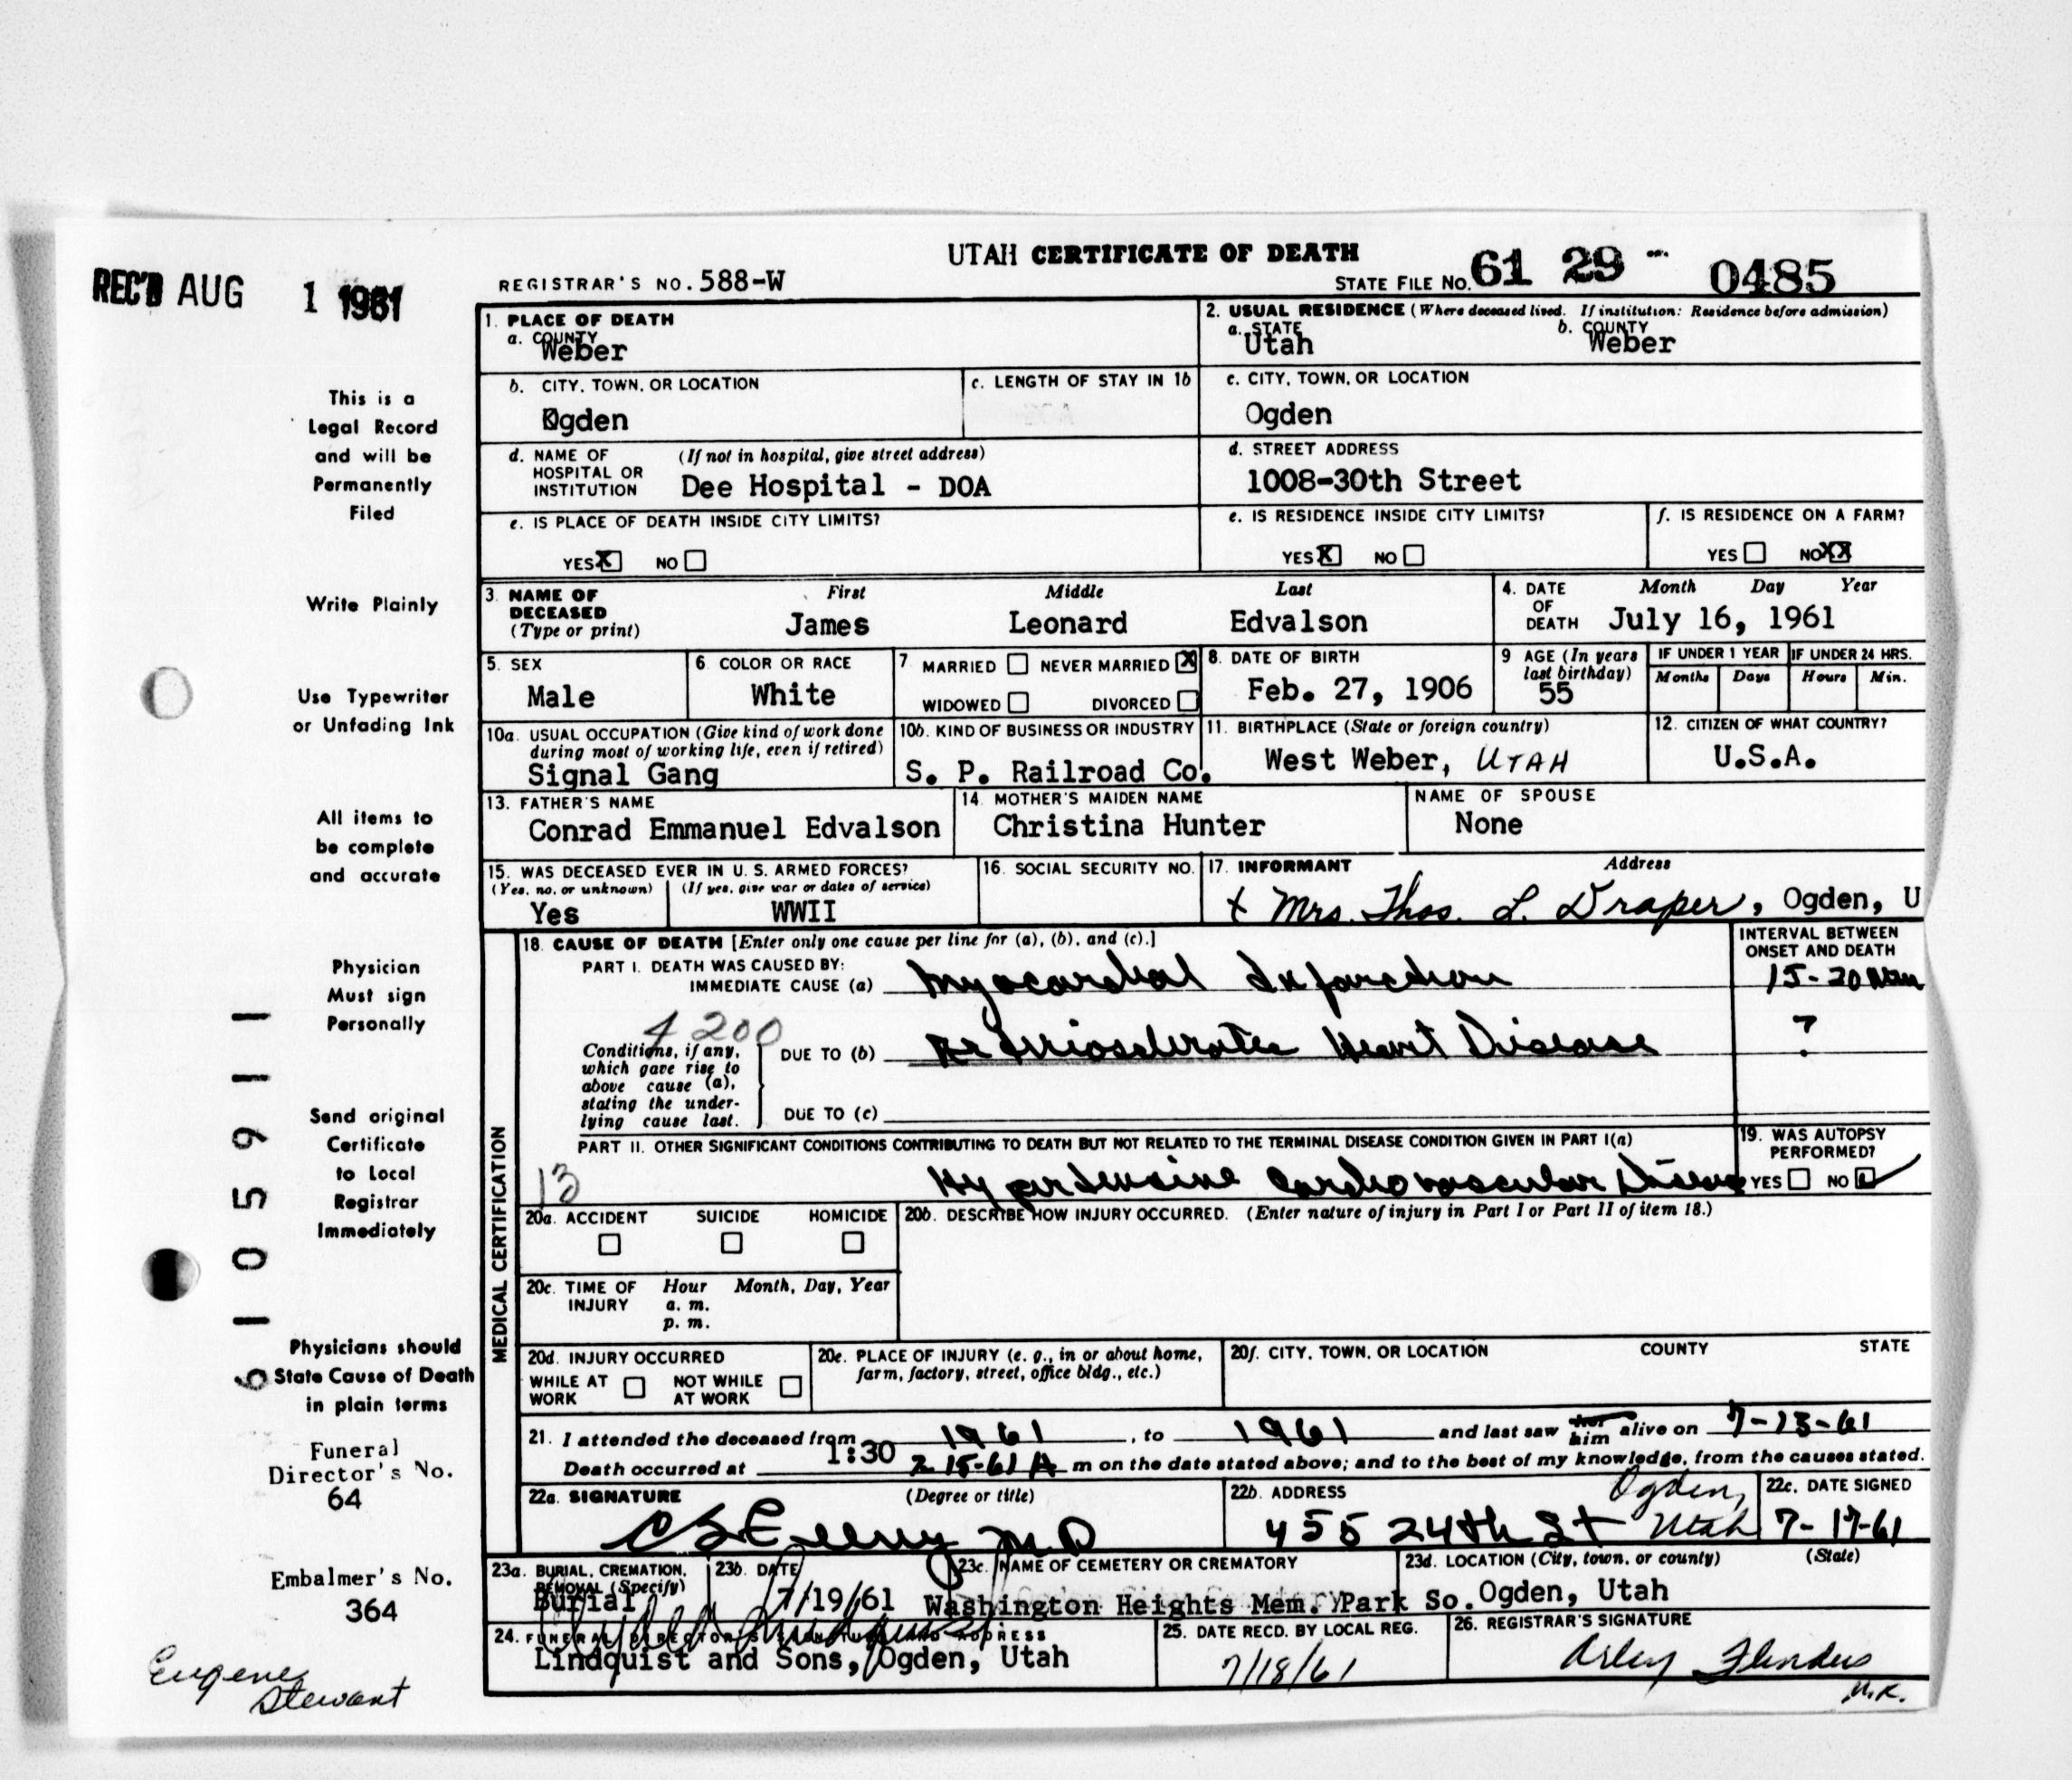 UTAH CERTIFICATE OF DEATH
REC'D AUG 1 1961
REGISTRAR'S NO. 588-W
STATE FILE NO. 61 29 - 0485
This is a
Legal Record
and will be
Permanently
Filed
Write Plainly
Use Typewriter
or Unfading Ink
All items to
be complete
and accurate
Physician
Must sign
Personally
Send original
Certificate
to Local
Registrar
Immediately
Physicians should
State Cause of Death
in plain terms
Funeral
Director's No.
64
Embalmer's No.
364
Eugene
Stewart
1. PLACE OF DEATH
a. COUNTY
Weber
2. USUAL RESIDENCE (Where deceased lived. If institution: Residence before admission)
a. STATE b. COUNTY
Utah Weber
b. CITY, TOWN, OR LOCATION
Ogden
c. LENGTH OF STAY IN 1b
c. CITY, TOWN, OR LOCATION
Ogden
d. NAME OF (If not in hospital, give street address)
HOSPITAL OR
INSTITUTION Dee Hospital - DOA
d. STREET ADDRESS
1008-30th Street
e. IS PLACE OF DEATH INSIDE CITY LIMITS?
YES X NO
e. IS RESIDENCE INSIDE CITY LIMITS?
YES X NO
f. IS RESIDENCE ON A FARM?
YES NO XX
3. NAME OF First Middle Last
DECEASED
(Type or print) James Leonard Edvalson
4. DATE Month Day Year
OF
DEATH July 16, 1961
5. SEX
Male
6. COLOR OR RACE
White
7 MARRIED NEVER MARRIED X
WIDOWED DIVORCED
8. DATE OF BIRTH
Feb. 27, 1906
9 AGE (In years
last birthday)
55
IF UNDER 1 YEAR IF UNDER 24 HRS.
Months Days Hours Min.
10a. USUAL OCCUPATION (Give kind of work done
during most of working life, even if retired)
Signal Gang
10b. KIND OF BUSINESS OR INDUSTRY
S. P. Railroad Co.
11. BIRTHPLACE (State or foreign country)
West Weber, UTAH
12. CITIZEN OF WHAT COUNTRY?
U.S.A.
13. FATHER'S NAME
Conrad Emmanuel Edvalson
14. MOTHER'S MAIDEN NAME
Christina Hunter
NAME OF SPOUSE
None
15. WAS DECEASED EVER IN U. S. ARMED FORCES?
(Yes, no, or unknown) (If yes, give war or dates of service)
Yes WWII
16. SOCIAL SECURITY NO.
17. INFORMANT Address
x Mrs. Thos. L. Draper, Ogden, U
MEDICAL CERTIFICATION
18. CAUSE OF DEATH [Enter only one cause per line for (a), (b), and (c).]
INTERVAL BETWEEN
ONSET AND DEATH
PART I. DEATH WAS CAUSED BY:
IMMEDIATE CAUSE (a) Myocardial Infarction 15-20 Min
4200
Conditions, if any,
which gave rise to
above cause (a),
stating the under-
lying cause last.
DUE TO (b) Arteriosclerotic Heart Disease ?
DUE TO (c)
PART II. OTHER SIGNIFICANT CONDITIONS CONTRIBUTING TO DEATH BUT NOT RELATED TO THE TERMINAL DISEASE CONDITION GIVEN IN PART I(a)
13 Hypertensive Cardiovascular Disease
19. WAS AUTOPSY
PERFORMED?
YES NO ✓
20a. ACCIDENT SUICIDE HOMICIDE
20b. DESCRIBE HOW INJURY OCCURRED. (Enter nature of injury in Part I or Part II of item 18.)
20c. TIME OF Hour Month, Day, Year
INJURY a. m.
p. m.
20d. INJURY OCCURRED
WHILE AT NOT WHILE
WORK AT WORK
20e. PLACE OF INJURY (e. g., in or about home,
farm, factory, street, office bldg., etc.)
20f. CITY, TOWN, OR LOCATION COUNTY STATE
21. I attended the deceased from 1961, to 1961 and last saw her him alive on 7-13-61
Death occurred at 1:30 A m on the date stated above; and to the best of my knowledge, from the causes stated.
22a. SIGNATURE (Degree or title)
M.D
22b. ADDRESS
455 24th St Ogden, Utah
22c. DATE SIGNED
7-17-61
23a. BURIAL, CREMATION,
REMOVAL (Specify)
Burial
23b. DATE
7/19/61
23c. NAME OF CEMETERY OR CREMATORY
Washington Heights Mem. Park
23d. LOCATION (City, town, or county) (State)
So. Ogden, Utah
24. FUNERAL DIRECTOR'S SIGNATURE AND ADDRESS
Lindquist and Sons, Ogden, Utah
25. DATE RECD. BY LOCAL REG.
7/18/61
26. REGISTRAR'S SIGNATURE
Arley Flinders
M.K.
6 1 0 5 9 1 1